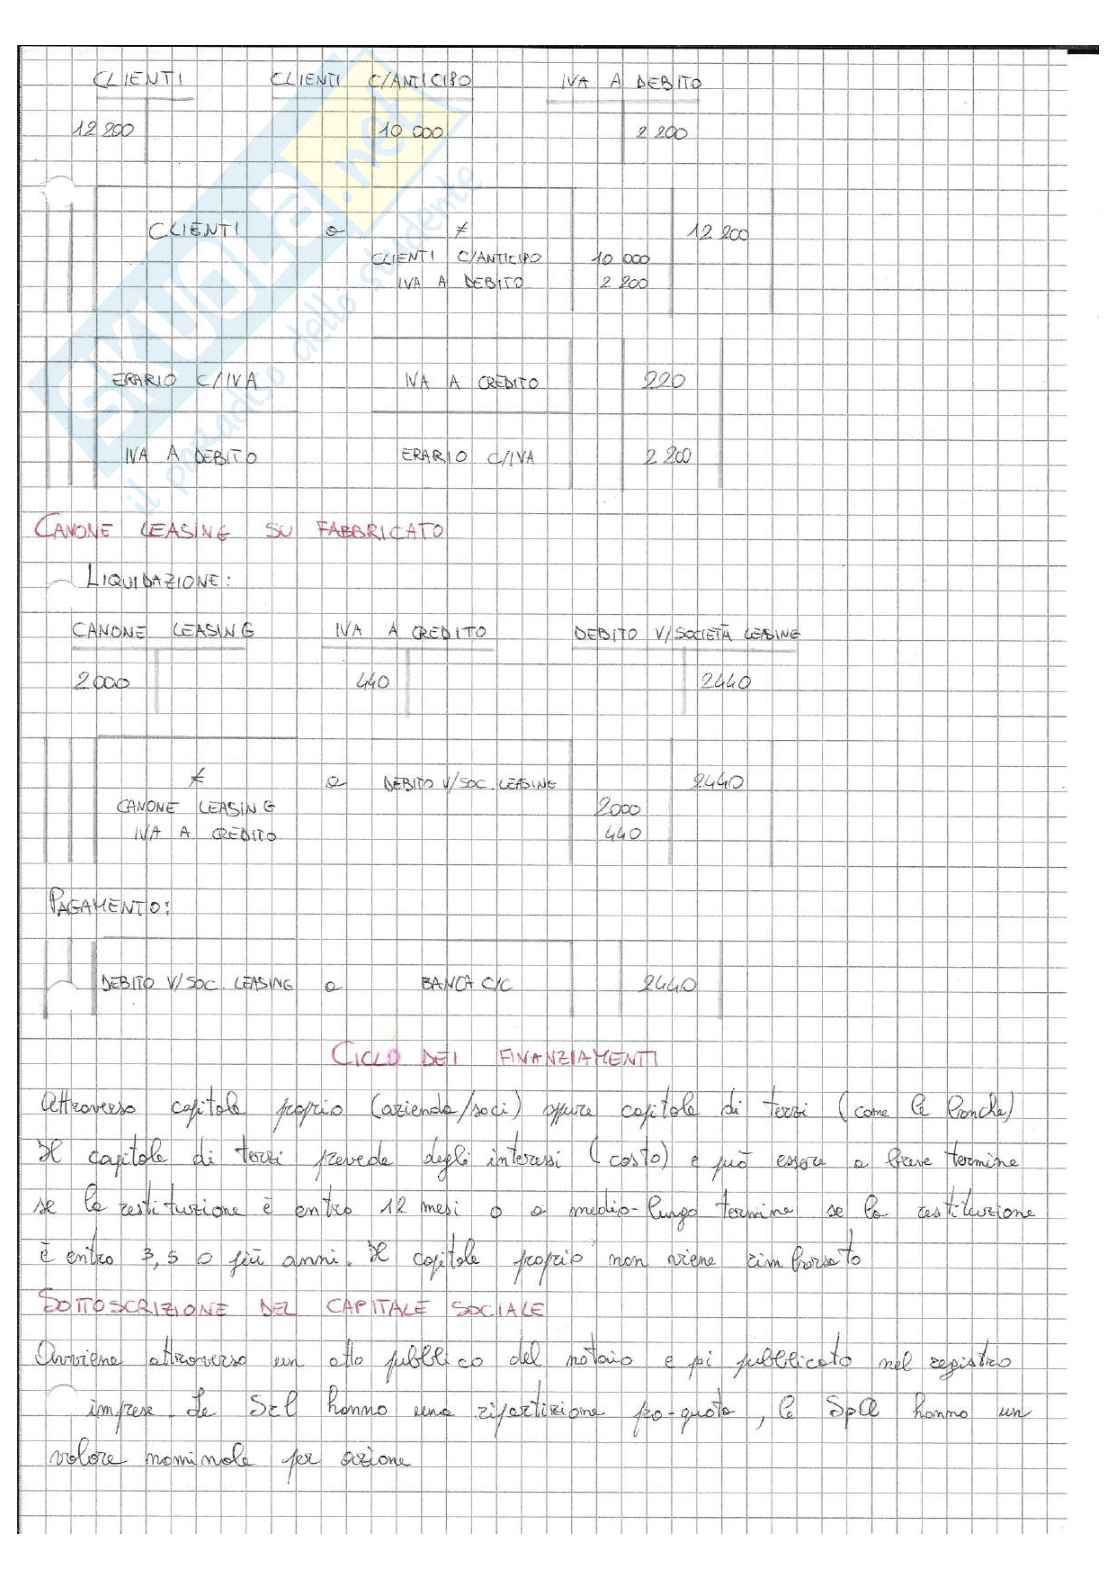 CLIENTI CLIENTI C/ANTICIPO IVA A DEBITO
12 200 10 000 2 200
CLIENTI a ≠ 12 200
CLIENTI C/ANTICIPO 10 000
IVA A DEBITO 2 200
ERARIO C/IVA IVA A CREDITO 220
IVA A DEBITO ERARIO C/IVA 2 200
CANONE LEASING SU FABBRICATO
LIQUIDAZIONE:
CANONE LEASING IVA A CREDITO DEBITO V/SOCIETÀ LEASING
2000 440 2440
≠ a DEBITO V/SOC. LEASING 2440
CANONE LEASING 2000
IVA A CREDITO 440
PAGAMENTO:
DEBITO V/SOC. LEASING a BANCA C/C 2440
CICLO DEI FINANZIAMENTI
Attraverso capitale proprio (azienda/soci) oppure capitale di terzi (come le banche)
Il capitale di terzi prevede degli interessi (costo) e può essere a breve termine
se la restituzione è entro 12 mesi o a medio-lungo termine se la restituzione
è entro 3,5 o più anni. Il capitale proprio non viene rimborsato
SOTTOSCRIZIONE DEL CAPITALE SOCIALE
Avviene attraverso un atto pubblico del notaio e poi pubblicato nel registro
imprese. Le Srl hanno una ripartizione pro-quota, le SpA hanno un
valore nominale per azione
SKUOLA.net
il paradiso dello studente